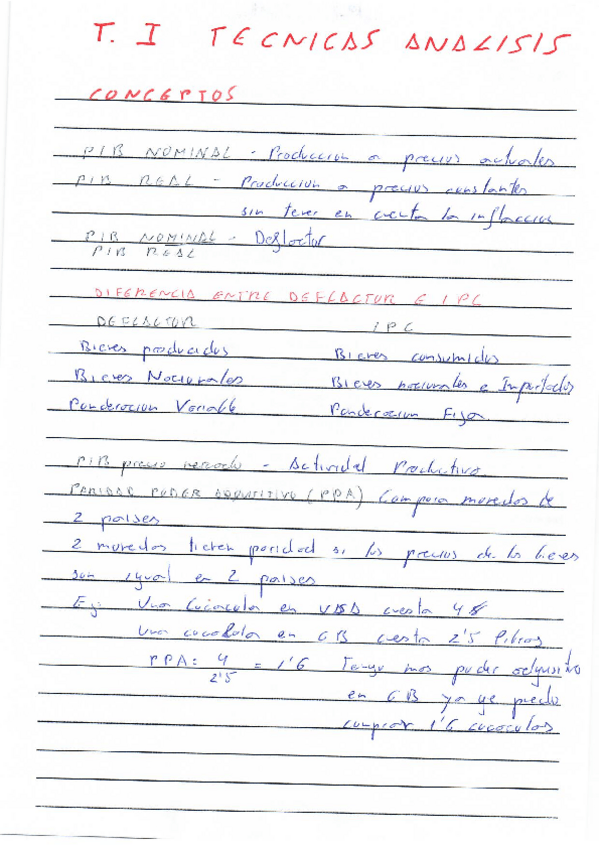 T. I TECNICAS ANALISIS
CONCEPTOS
PIB NOMINAL - Produccion a precios actuales
PIB REAL - Produccion a precios constantes
sin tener en cuenta la inflaccion
PIB NOMINAL - Deflactor
PIB REAL
DIFERENCIA ENTRE DEFLACTOR E IPC
DEFLACTOR IPC
Bienes producidos Bienes consumidos
Bienes Nacionales Bienes nacionales e Importados
Ponderacion Variable Ponderacion Fija
PIB precio mercado - Actividad Productiva
PARIDAD PODER ADQUISITIVO (PPA) Compara monedas de
2 paises
2 monedas tienen paridad si los precios de los bienes
son igual en 2 paises
Ej: Una cocacola en USA cuesta 4$
Una cocacola en GB cuesta 2'5 libras
PPA: 4 = 1'6 Tengo mas poder adquisitivo
2'5
en GB ya que puedo
comprar 1'6 cocacolas